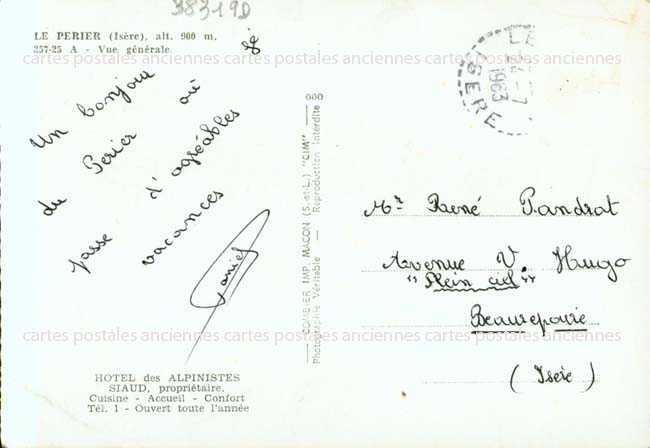 38319D
LE PERIER (Isère), alt. 900 m.
357-25 A - Vue générale.
Un bonjour
du Perier où
passe d'agréables
vacances
Daniel
HOTEL des ALPINISTES
SIAUD, propriétaire.
Cuisine - Accueil - Confort
Tél. 1 - Ouvert toute l'année
COMBIER IMP. MACON (S.-et-L.) "CIM"
Photographie Véritable - Reproduction Interdite
LE
-7
1963
ISERE
Mr René Pandrat
Avenue V. Hugo
"Plein ciel"
Beaurepaire
(Isère)
cartes postales anciennes cartes postales anciennes cartes postales anciennes
cartes postales anciennes cartes postales anciennes cartes postales anciennes